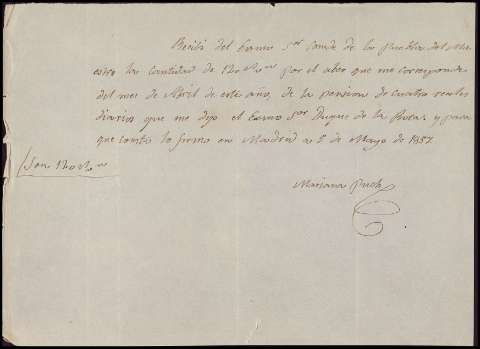 Recibí del Exmo Sr. Conde de la Puebla del Ma-
estre la cantidad de 120 Rs.vn por el abor que me corresponde
del mes de Abril de este año, de la pension de cuatro reales
diarios que me dejo el Exmo Sor Duque de la Roca, y para
que conste lo firmo en Madrid a 5 de Mayo de 1857.
Son 120 Rs.vn
Mariana